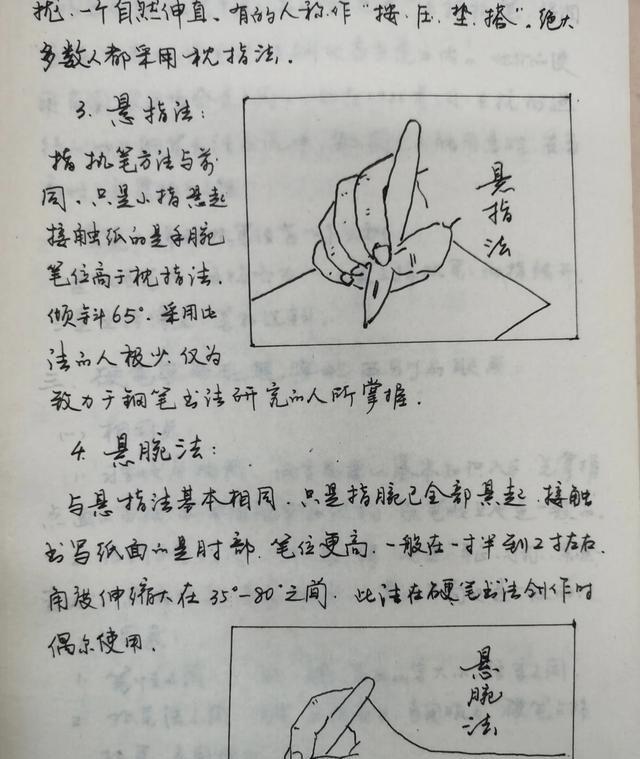 扰，一个自然伸直。有的人称作“按、压、垫、搭”。绝大
多数人都采用枕指法．
3. 悬指法：
指执笔方法与前
同．只是小指悬起
接触纸的是手腕
笔位高于枕指法．
倾斜65°．采用此
法的人极少．仅为
致力于钢笔书法研究的人所掌握．
悬指法
4. 悬腕法：
与悬指法基本相同．只是指腕已全部悬起．接触
书写纸面的是肘部．笔位更高．一般在一寸半到2寸左右．
角度伸缩大在35°－80°之间．此法在硬笔书法创作时
偶尔使用．
悬腕法